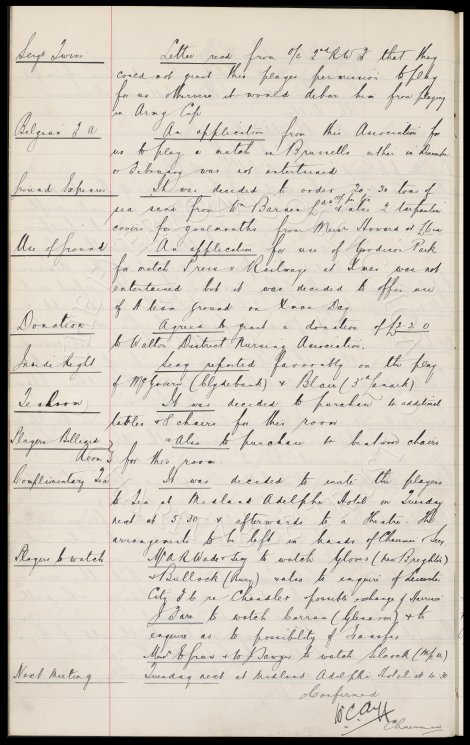 Sergt Irvine Letter read from O/C 2nd R W F that they
could not grant this player permission to play
for us otherwise it would debar him from playing
in Army Cup
Belgian F A An application from this Association for
us to play a match in Brussells either in December
or February was not entertained
Ground Expenses It was decided to order 20-30 tons of
sea sand from Wm Barnes & also 2 tarpaulin
covers for goalmouths from Messr Howard
Use of Ground An application for use of Goodison Park
for match Press v Railway at Xmas was not
entertained but it was decided to offer use
of A team ground on Xmas Day
Donation Agreed to grant a donation of £2 2 0
to Walton District Nursing Association.
Inside Right Secy reported favorably on the play
of McGovern (Clydebank) & Blair (3rd Lanark)
Tea Room It was decided to purchase 4 additional
tables & 8 chairs for this room
Players Billiard & Also to purchase 4 bentwood chairs
Room } for this room
Complimentary Tea It was decided to invite the players
to Tea at Midland Adelphi Hotel on Tuesday
next at 5.30 & afterwards to a Theatre. The
arrangements to be left in hands of Chairman & Secy.
Players to watch Mr A R Wade & Secy to watch Glover (New Brighton)
& Bullock (Bury) & also to enquire of Leicester
City F C re Chandler possible exchange of Harrison
J Fare to watch Curran (Glenavon) & to
enquire as to possibility of Transfer
Messrs E Green & W J Sawyer to watch
Next Meeting Tuesday next at Midland Adelphi Hotel at 4.30
Confirmed
W.C. Cuff
Chairman